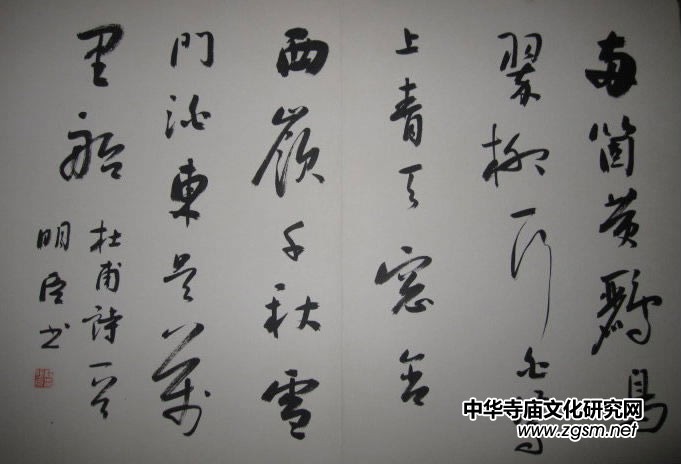 兩箇黄鸝鳴
翠柳一行白鷺
上青天窓含
西嶺千秋雪
門泊東吴萬
里船
杜甫詩一首
明书
中华寺庙文化研究网
www.zgsm.net